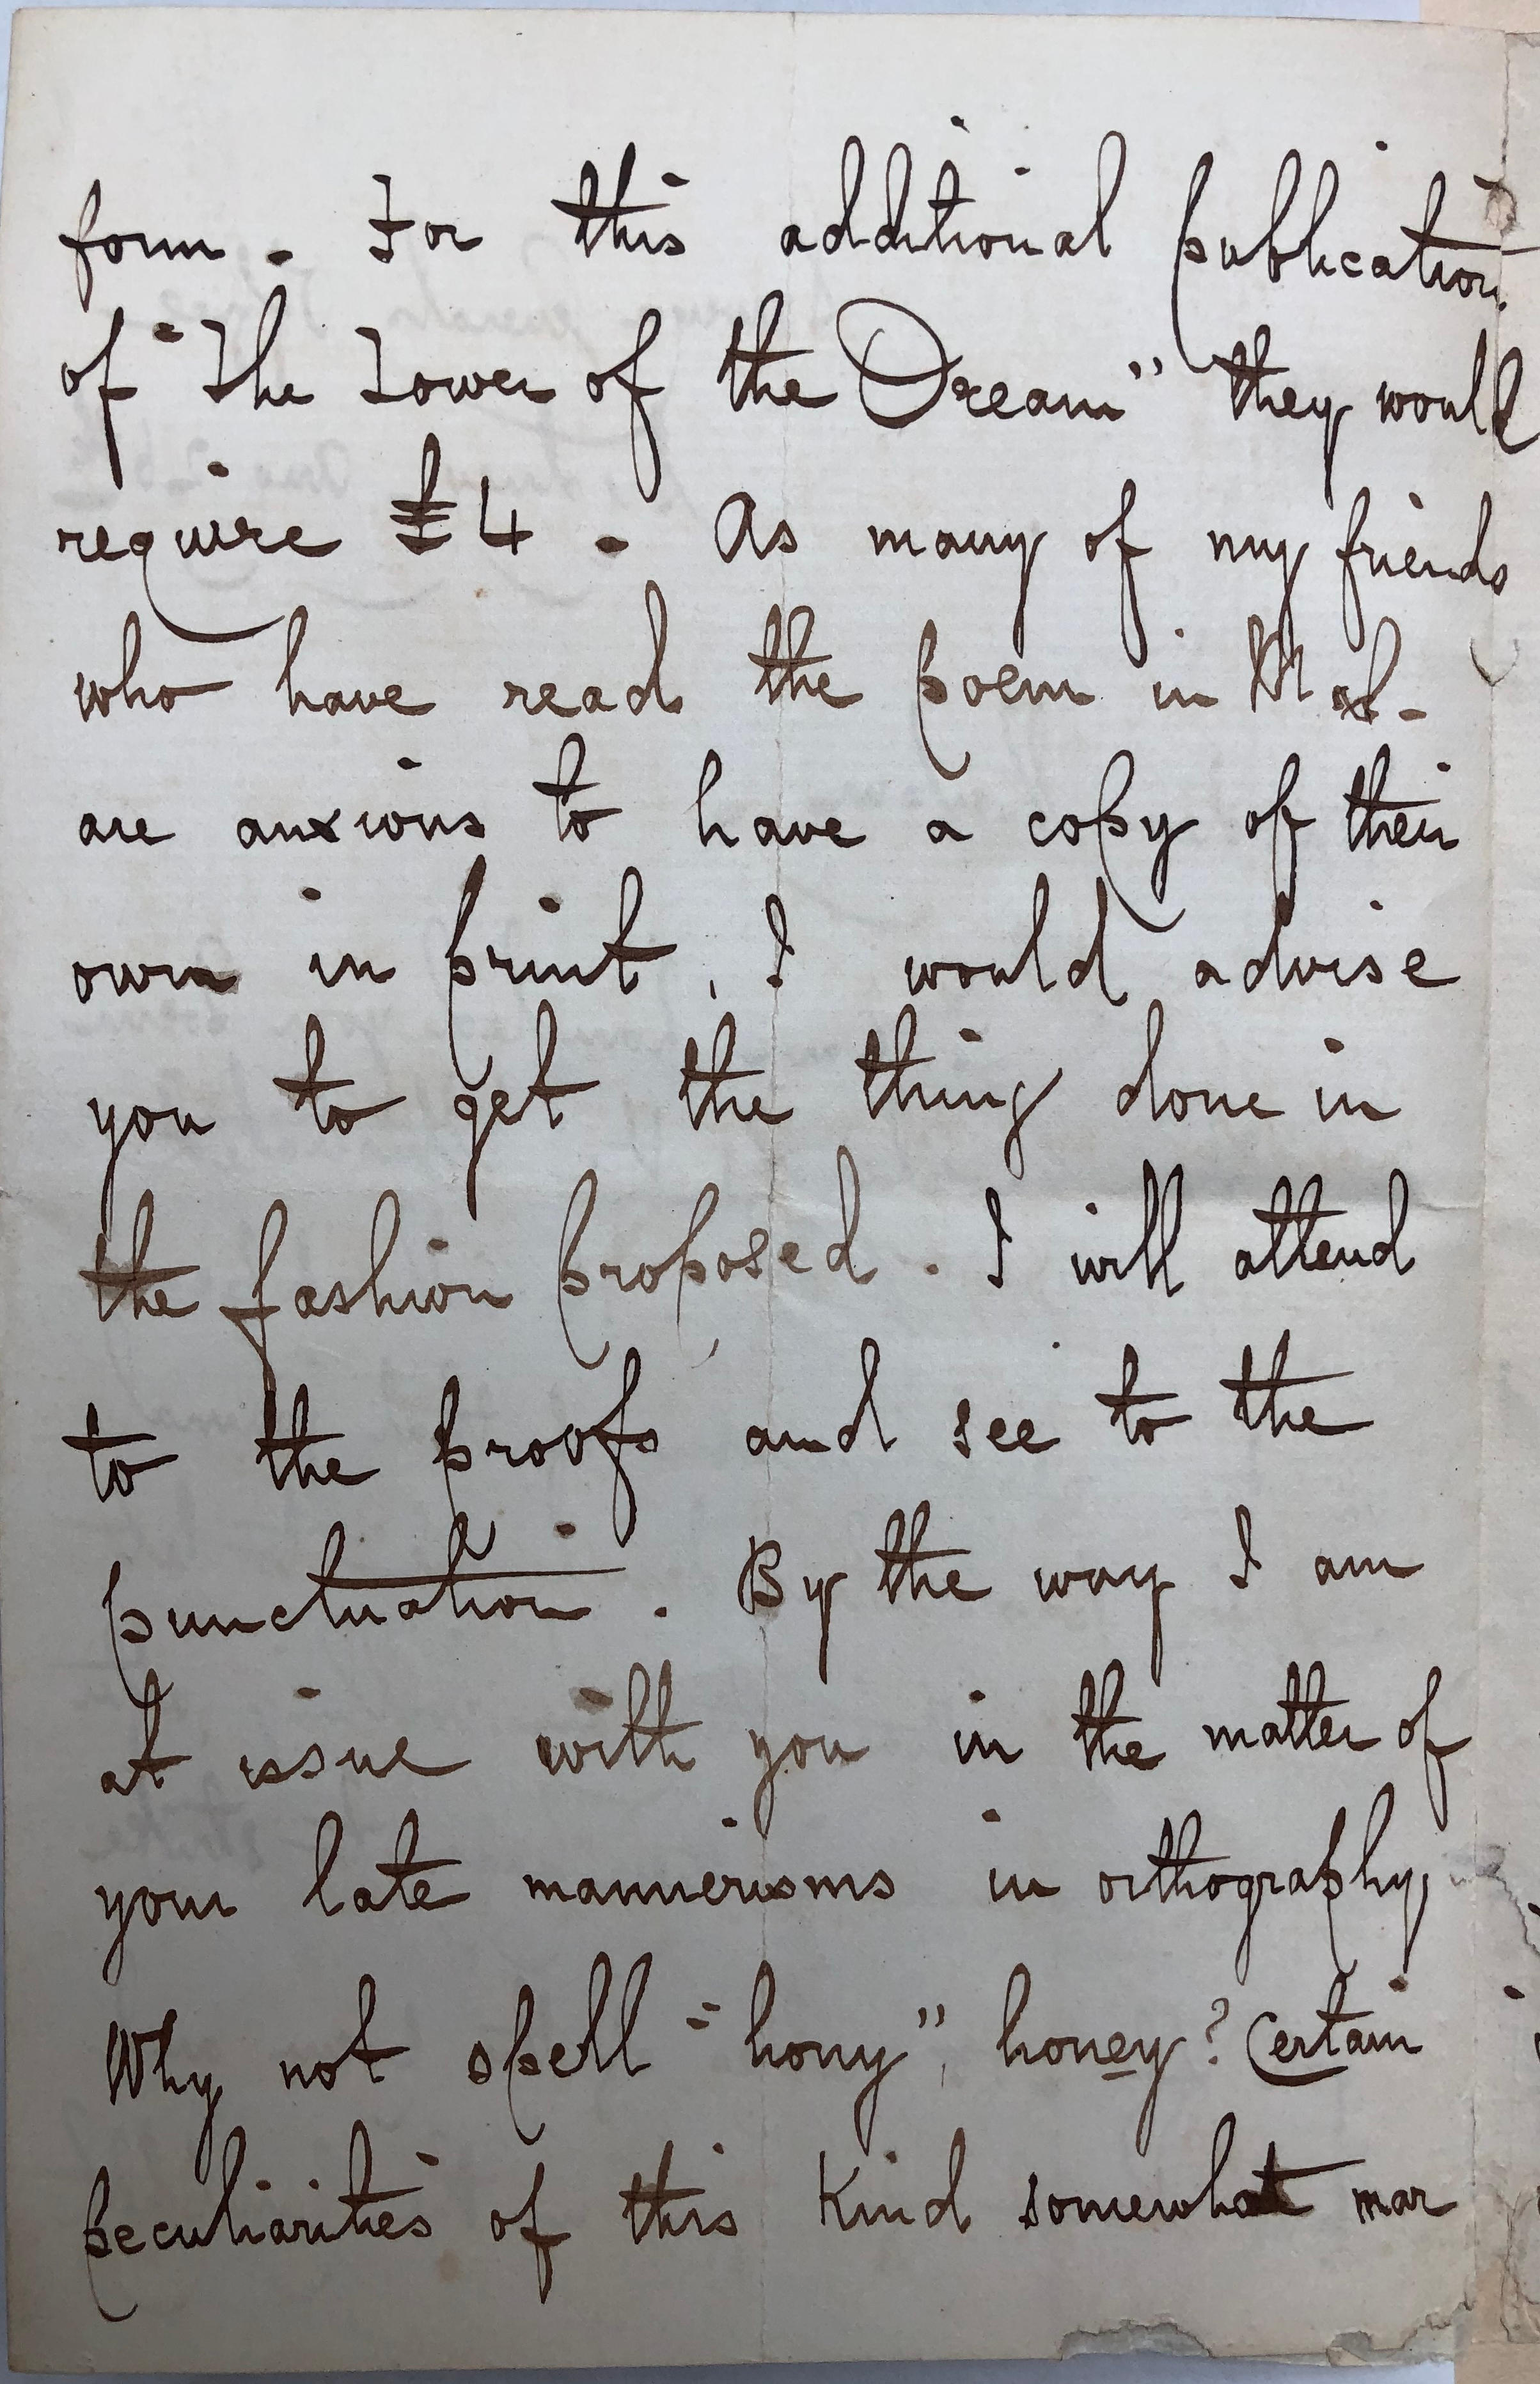 form. For this additional publication
of "The Tower of the Dream" they would
require £4. As many of my friends
who have read the poem in M.S.
are anxious to have a copy of their
own in print, I would advise
you to get the thing done in
the fashion proposed. I will attend
to the proofs and see to the
punctuation. By the way I am
at issue with you in the matter of
your late mannerisms in orthography.
Why not spell "hony", honey? Certain
peculiarities of this kind somewhat mar